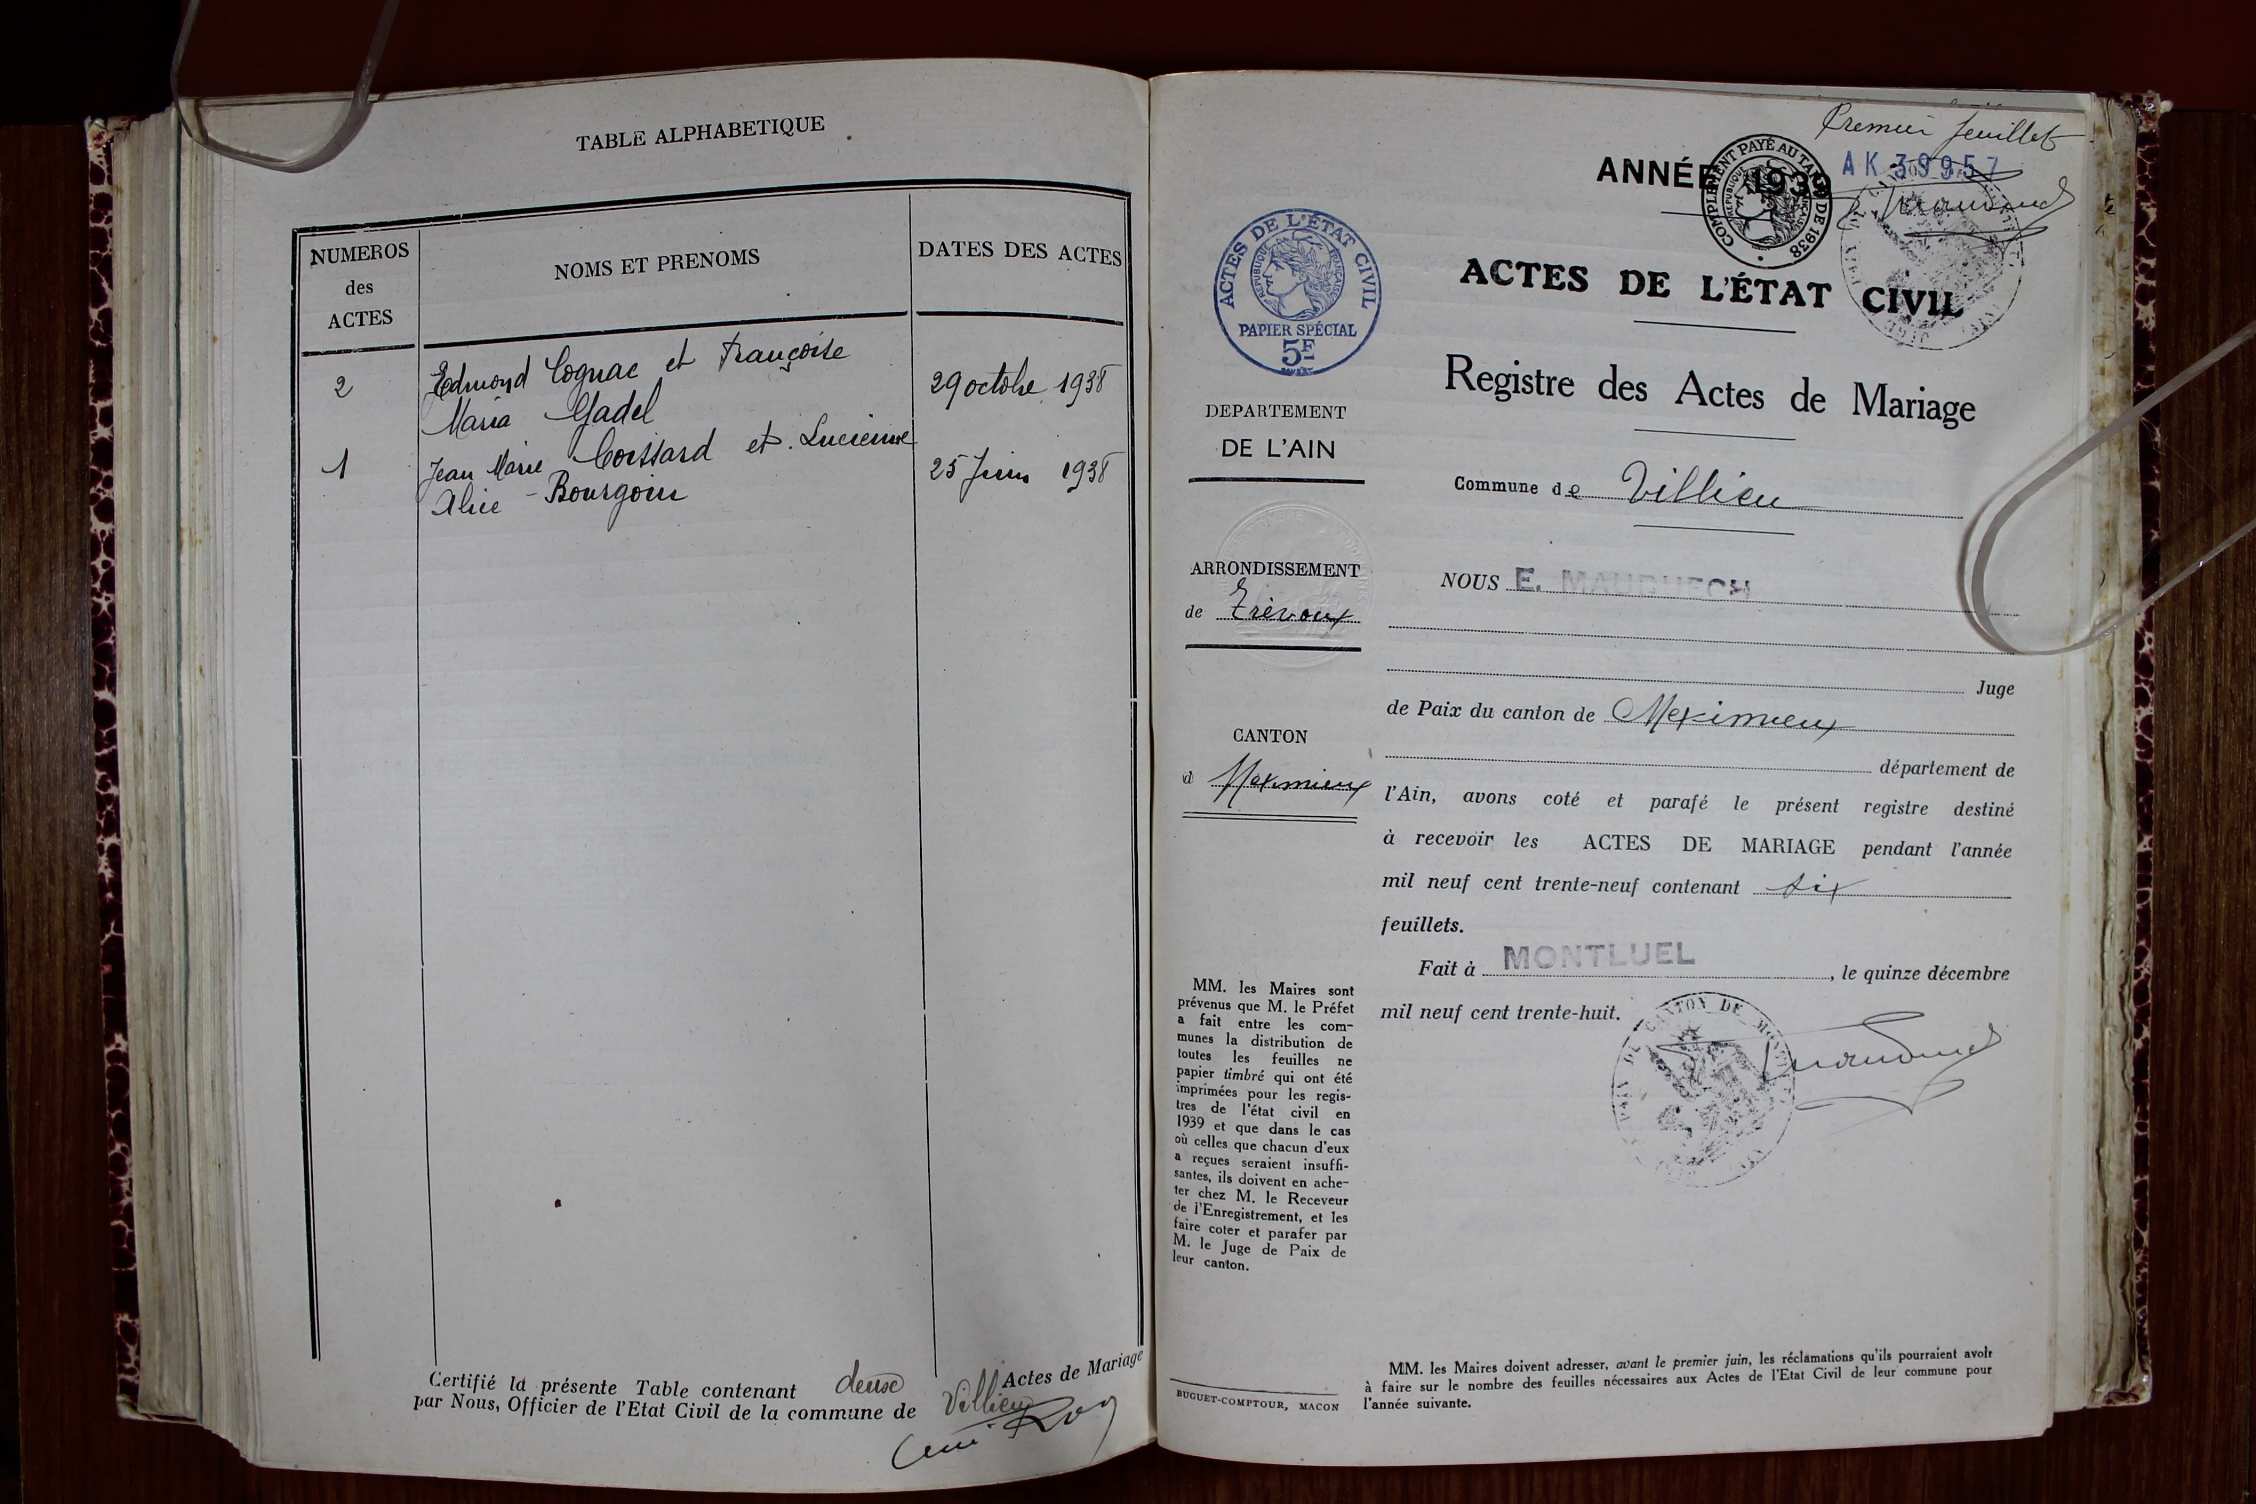 TABLE ALPHABETIQUE
NUMEROS
des
ACTES
NOMS ET PRENOMS
DATES DES ACTES
2
Edmond Cognac et Françoise
Maria Gadel
29 octobre 1938
1
Jean Marie Coissard et Lucienne
Alice - Bourgoin
25 Juin 1938
Certifié la présente Table contenant deux Actes de Mariage
par Nous, Officier de l'Etat Civil de la commune de Villieu
Premier feuillet
ANNÉE 1939
AK 39957
COMPLEMENT PAYÉ AU TARIF DE 1938
ACTES DE L'ÉTAT CIVIL
REPUBLIQUE FRANÇAISE
PAPIER SPÉCIAL
5F
DEPARTEMENT
DE L'AIN
ARRONDISSEMENT
de Trévoux
CANTON
d Meximieux
MM. les Maires sont
prévenus que M. le Préfet
a fait entre les com-
munes la distribution de
toutes les feuilles ne
papier timbré qui ont été
imprimées pour les regis-
tres de l'état civil en
1939 et que dans le cas
où celles que chacun d'eux
a reçues seraient insuffi-
santes, ils doivent en ache-
ter chez M. le Receveur
de l'Enregistrement, et les
faire coter et parafer par
M. le Juge de Paix de
leur canton.
BUGUET-COMPTOUR, MACON
ACTES DE L'ÉTAT CIVIL
Registre des Actes de Mariage
Commune de Villieu
NOUS E. MAUDUECH
Juge
de Paix du canton de Meximieux
département de
l'Ain, avons coté et parafé le présent registre destiné
à recevoir les ACTES DE MARIAGE pendant l'année
mil neuf cent trente-neuf contenant six
feuillets.
Fait à MONTLUEL, le quinze décembre
mil neuf cent trente-huit.
CANTON DE
MM. les Maires doivent adresser, avant le premier juin, les réclamations qu'ils pourraient avoir
à faire sur le nombre des feuilles nécessaires aux Actes de l'Etat Civil de leur commune pour
l'année suivante.